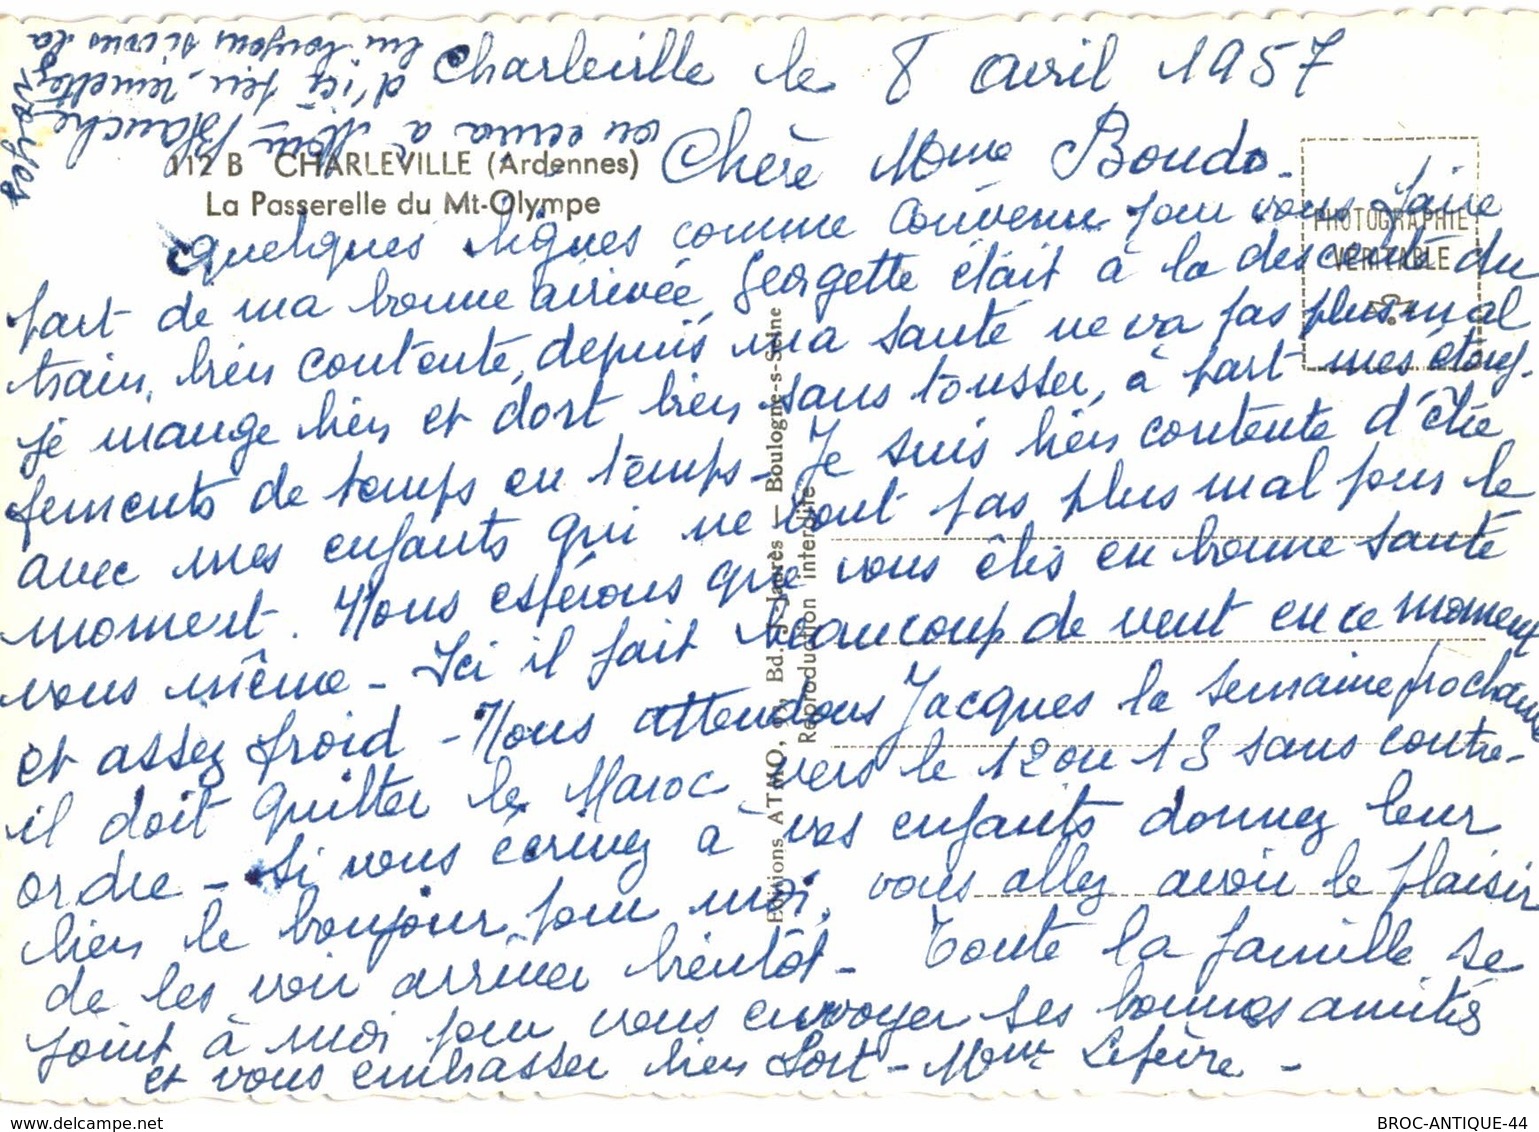 Charleville le 8 avril 1957
112 B CHARLEVILLE (Ardennes)
La Passerelle du Mt-Olympe
Chère Mme Boudo -
PHOTOGRAPHIE
VÉRITABLE
Quelques lignes comme convenu pour vous faire
part de ma bonne arrivée, Georgette était à la descente du
train, bien contente, depuis ma santé ne va pas plus mal
je mange bien et dort bien sans tousser, à part mes étouf-
fements de temps en temps - Je suis bien contente d'être
avec mes enfants qui ne vont pas plus mal pour le
moment. Nous espérons que vous êtes en bonne santé
vous même - Ici il fait beaucoup de vent en ce moment
et assez froid - Nous attendons Jacques la semaine prochaine
il doit quitter le Maroc vers le 12 ou 13 sans contre-
ordre - Si vous écrivez à vos enfants donnez leur
bien le bonjour pour moi, vous allez avoir le plaisir
de les voir arriver bientôt - Toute la famille se
joint à moi pour vous envoyer ses bonnes amitiés
et vous embrasser bien fort - Mme Lefèvre -
on écrira à Mme Blanche
d'ici peu, remettez
lui toujours si vous la
voyez
Editions ATMO, 93, Bd. J.-Jaurès — Boulogne-s-Seine
Reproduction interdite
BROC-ANTIQUE-44
www.delcampe.net